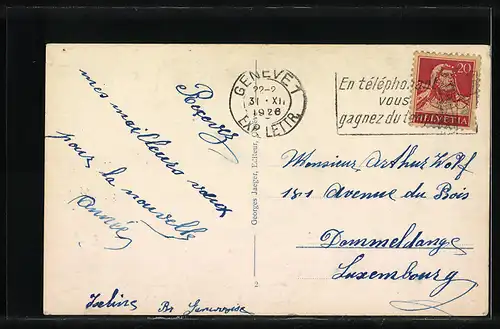 Recevez
mes meilleurs vœux
pour la nouvelle
année
GENEVE 1
22-2
31.XII
1926
EXP. LETTR.
En téléphonant
vous
gagnez du
20
HELVETIA
Georges Jaeger, Editeur,
Monsieur Arthur Wolf
181 Avenue du Bois
Dommeldange
Luxembourg
2